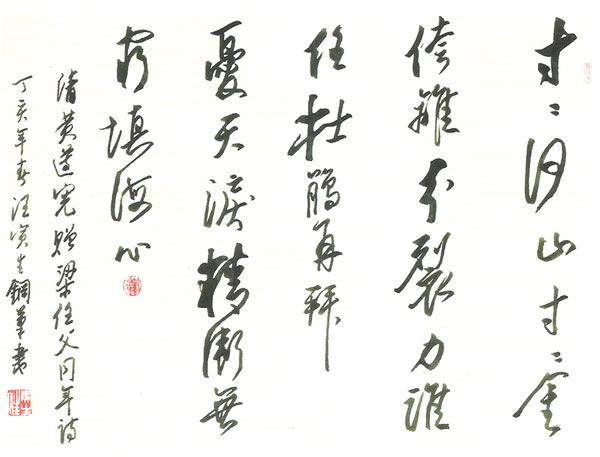 寸〻河山寸〻金
侉離分裂力誰
任杜鵑再拜
憂天淚精衛無
窮填海心
清黄遵宪贈梁任父同年詩
丁亥年春汪生鋼筆書